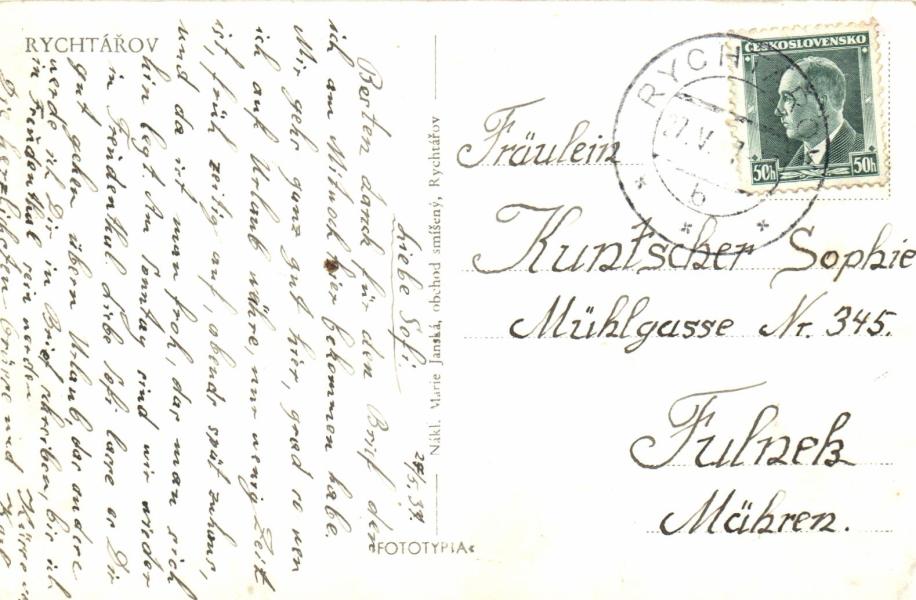 RYCHTÁŘOV
26/5. 37.
Liebe Sofi.
Besten danck für den Brif den
ich am Mituoch hier bekommen habe.
Mir gehs ganz gut hier, grad so wen
ich auf Urlaub währe, nur wenig Zeit
ist, früh zeitig auf, abends spät zuhaus,
und da ist man froh, das man sich
hin legt. Am Sonntag sind wir wieder
in Freudenthal Liebe Sofi lasse es Dir
gut gehen, übern Urlaub, das andere
werde ich Dir in Brief schreiben, bis ich
in Freudenthal sein werde.
Die herzlichsten Grüsse und Küsse
Nákl. Marie Janská, obchod smíšený, Rychtářov
„FOTOTYPIA“
ČESKOSLOVENSKO
50h 50h
RYCHTÁŘOV
27. V.
b
Fräulein
Kuntscher Sophie
Mühlgasse Nr. 345.
Fulnek
Mähren.